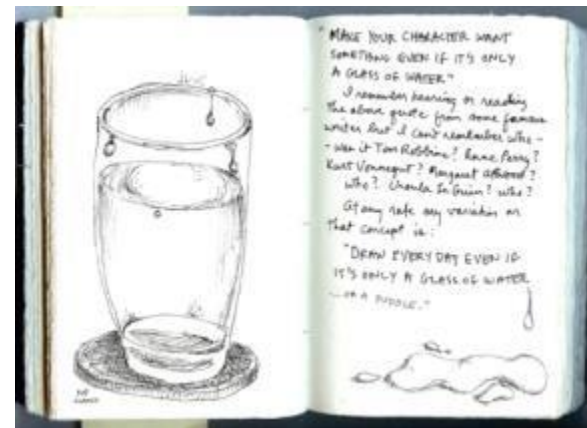 "MAKE YOUR CHARACTER WANT
SOMETHING EVEN IF IT'S ONLY
A GLASS OF WATER"
I remember hearing or reading
the above quote from some famous
writer but I can't remember who -
- was it Tom Robbins? Anne Perry?
Kurt Vonnegut? Margaret Atwood?
who? Ursula Le Guin? who?
At any rate my variation on
that concept is:
"DRAW EVERY DAY EVEN IF
IT'S ONLY A GLASS OF WATER
... OR A PUDDLE."